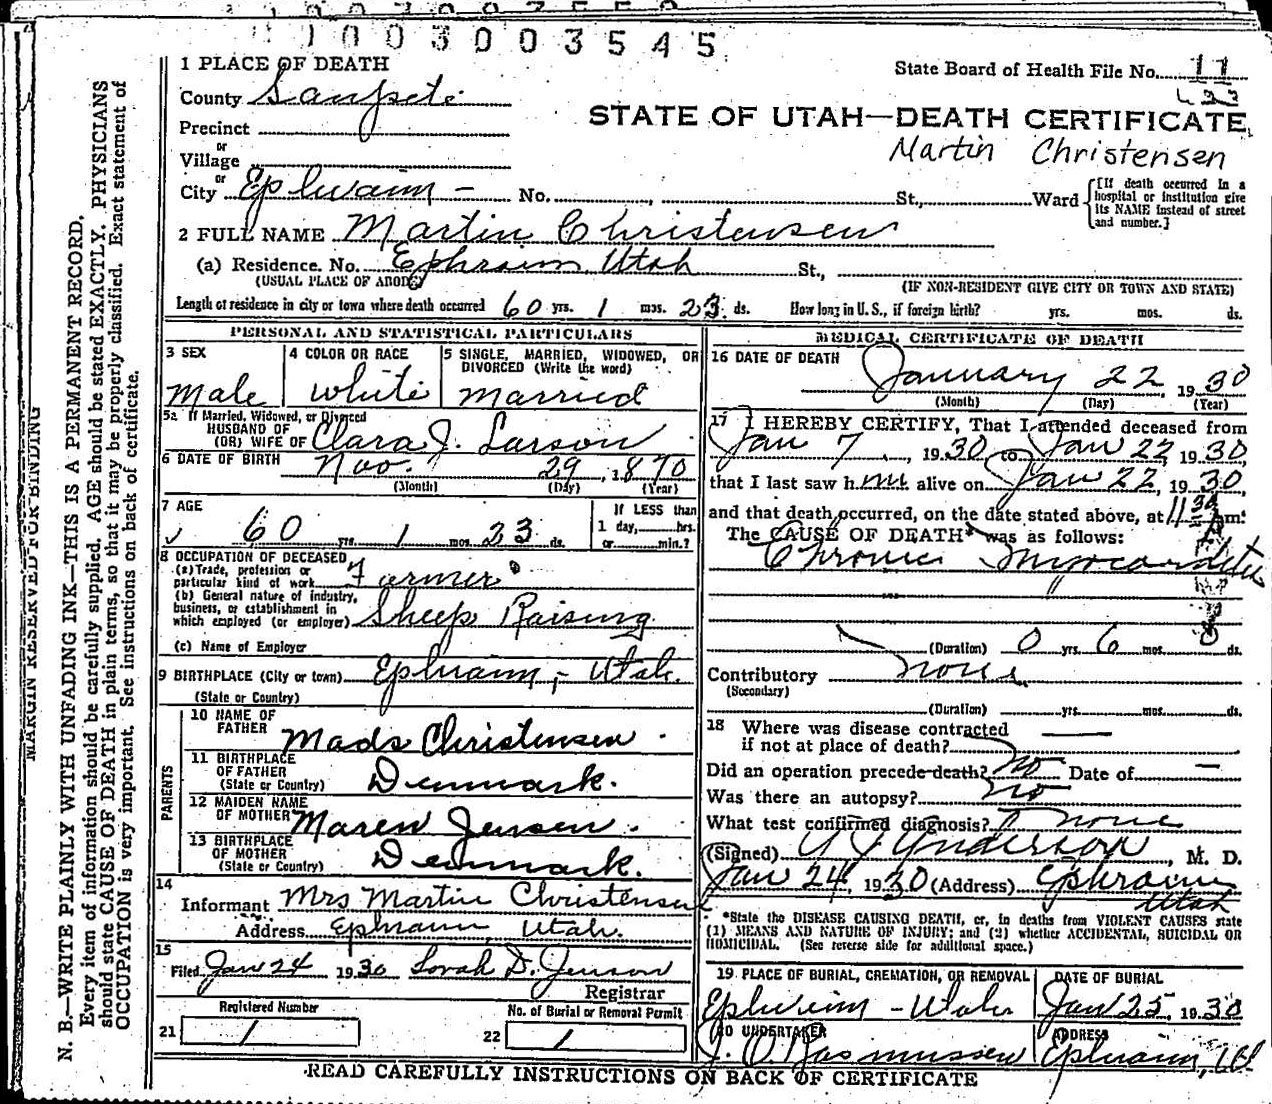 1003003545
1 PLACE OF DEATH
State Board of Health File No. 11
County Sanpete
STATE OF UTAH—DEATH CERTIFICATE
Precinct
Martin Christensen
or
Village
or
City Ephraim - No. , St., Ward
[If death occurred in a hospital or institution give its NAME instead of street and number.]
2 FULL NAME Martin Christensen
(a) Residence. No. Ephraim Utah St.,
(USUAL PLACE OF ABODE) (IF NON-RESIDENT GIVE CITY OR TOWN AND STATE)
Length of residence in city or town where death occurred 60 yrs. 1 mos. 23 ds. How long in U. S., if foreign birth? yrs. mos. ds.
PERSONAL AND STATISTICAL PARTICULARS
3 SEX
Male
4 COLOR OR RACE
White
5 SINGLE, MARRIED, WIDOWED, OR DIVORCED (Write the word)
Married
5a If Married, Widowed, or Divorced
HUSBAND OF
(OR) WIFE OF Clara J. Larson
6 DATE OF BIRTH Nov. 29, 1870
(Month) (Day) (Year)
7 AGE
60 yrs. 1 mos. 23 ds.
If LESS than
1 day, hrs.
or min.?
8 OCCUPATION OF DECEASED
(a) Trade, profession or
particular kind of work Farmer
(b) General nature of industry,
business, or establishment in
which employed (or employer) Sheep Raising
(c) Name of Employer
9 BIRTHPLACE (City or town) Ephraim, - Utah.
(State or Country)
PARENTS
10 NAME OF
FATHER Mads Christensen.
11 BIRTHPLACE
OF FATHER
(State or Country) Denmark.
12 MAIDEN NAME
OF MOTHER Maren Jensen.
13 BIRTHPLACE
OF MOTHER
(State or Country) Denmark.
14
Informant Mrs Martin Christensen
Address Ephraim, Utah.
15
Filed Jan 24 1930 Sorah D. Jenson
Registrar
Registered Number
21 1
No. of Burial or Removal Permit
22 1
MEDICAL CERTIFICATE OF DEATH
16 DATE OF DEATH
January 22 1930
(Month) (Day) (Year)
17 I HEREBY CERTIFY, That I attended deceased from
Jan 7, 1930 to Jan 22 1930,
that I last saw him alive on Jan 22, 1930
and that death occurred, on the date stated above, at 11 30 Am.
The CAUSE OF DEATH* was as follows:
Chronic Myocarditis
(Duration) 0 yrs 6 mos. 0 ds.
Contributory none
(Secondary)
(Duration) yrs. mos. ds.
18 Where was disease contracted
if not at place of death?
Did an operation precede death? no Date of —
Was there an autopsy? no
What test confirmed diagnosis? none
(Signed) Anderson, M. D.
Jan 24, 1930 (Address) Ephraim
Utah
*State the DISEASE CAUSING DEATH, or, in deaths from VIOLENT CAUSES state
(1) MEANS AND NATURE OF INJURY; and (2) whether ACCIDENTAL, SUICIDAL OR
HOMICIDAL. (See reverse side for additional space.)
19 PLACE OF BURIAL, CREMATION, OR REMOVAL
Ephraim - Utah
DATE OF BURIAL
Jan 25, 1930
20 UNDERTAKER
J. O. Rasmussen
ADDRESS
Ephraim, Ut
READ CAREFULLY INSTRUCTIONS ON BACK OF CERTIFICATE
MARGIN RESERVED FOR BINDING
N. B.—WRITE PLAINLY WITH UNFADING INK—THIS IS A PERMANENT RECORD.
Every item of information should be carefully supplied. AGE should be stated EXACTLY. PHYSICIANS
should state CAUSE OF DEATH in plain terms, so that it may be properly classified. Exact statement of
OCCUPATION is very important. See instructions on back of certificate.